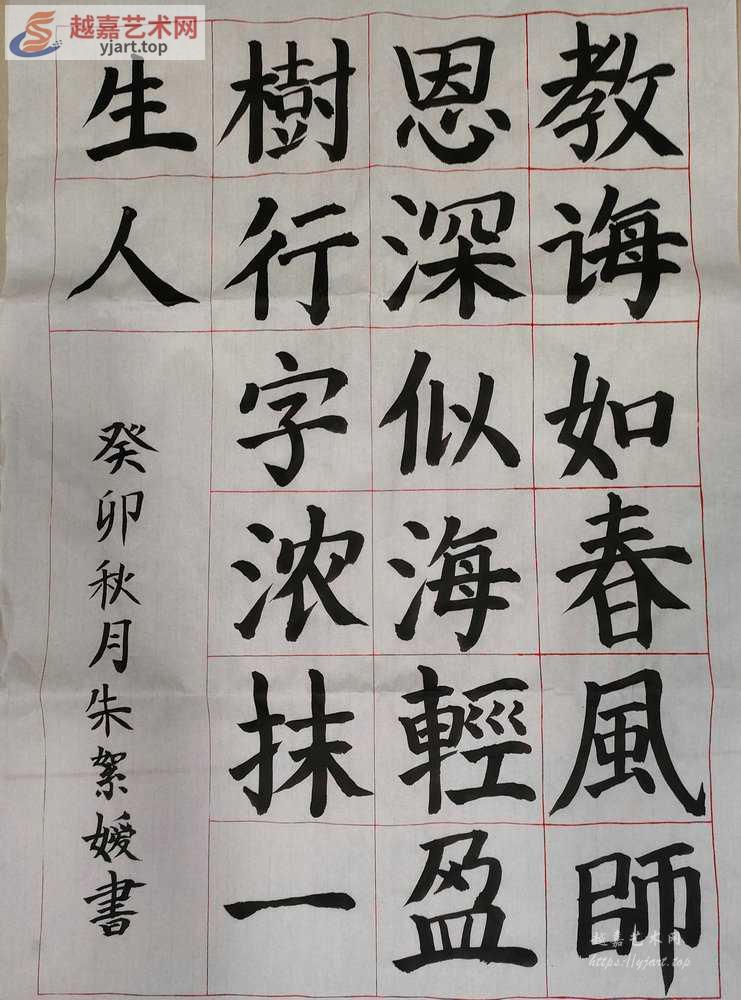 越嘉艺术网
yjart.top
教诲如春風師
恩深似海輕盈
樹行字浓抹一
生人
癸卯秋月朱絮嫒書
越嘉艺术网
https://yjart.top